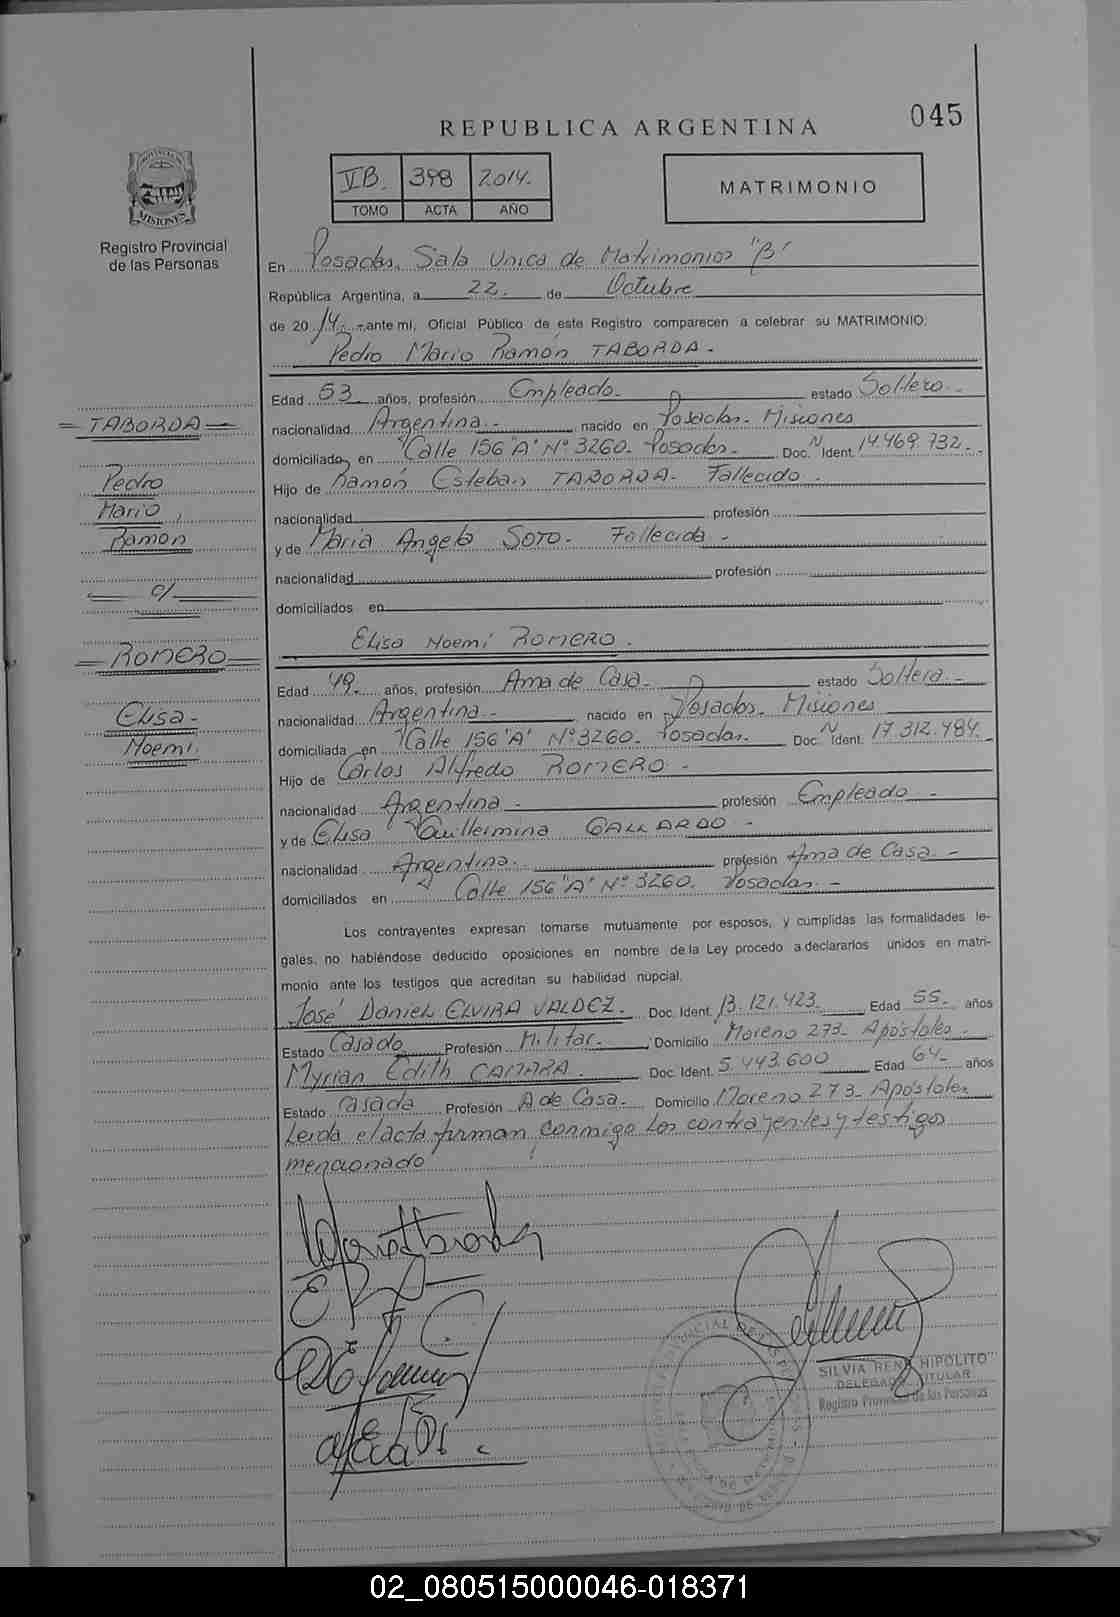 045
REPUBLICA ARGENTINA
VB. 398 2.014.
TOMO ACTA AÑO
MATRIMONIO
PROVINCIA DE
MISIONES
Registro Provincial
de las Personas
En Posadas, Sala Unica de Matrimonios "B"
República Argentina, a 22. de Octubre
de 2014. ante mí, Oficial Público de este Registro comparecen a celebrar su MATRIMONIO:
Pedro Mario Ramón TABORDA.
Edad 53 años, profesión Empleado. estado Soltero.
nacionalidad Argentina. nacido en Posadas. Misiones
domiciliado en Calle 156 "A" N° 3260. Posadas. Doc. N Ident. 14.469.732.
Hijo de Ramón Esteban TABORDA. Fallecido.
nacionalidad profesión
y de Maria Angela SOTO. Fallecida.
nacionalidad profesión
domiciliados en
Elisa Noemí ROMERO.
Edad 49. años, profesión Ama de Casa. estado Soltera.
nacionalidad Argentina. nacido en Posadas. Misiones
domiciliada en Calle 156 "A" N° 3260. Posadas. Doc. N Ident. 17.312.484.
Hijo de Carlos Alfredo ROMERO.
nacionalidad Argentina. profesión Empleado.
y de Elisa Guillermina GALLARDO
nacionalidad Argentina. profesión Ama de Casa.
domiciliados en Calle 156 "A" N° 3260. Posadas.
Los contrayentes expresan tomarse mutuamente por esposos, y cumplidas las formalidades le-
gales, no habiéndose deducido oposiciones en nombre de la Ley procedo a declararlos unidos en matri-
monio ante los testigos que acreditan su habilidad nupcial.
José Daniel ELVIRA VALDEZ. Doc. Ident. 13.121.423. Edad 55. años
Estado Casado Profesión Militar. Domicilio Moreno 273. Apóstoles.
Myrian Edith CAMARA. Doc. Ident. 5.443.600 Edad 64. años
Estado Casada Profesión A de Casa. Domicilio Moreno 273. Apóstoles
Leida el acta firman conmigo los contrayentes y testigos
mencionado
= TABORDA =
Pedro
Mario
Ramón
c/
= ROMERO =
Elisa
Noemí.
SILVIA RENE HIPOLITO
DELEGADA TITULAR
Registro Provincial de las Personas
02_080515000046-018371